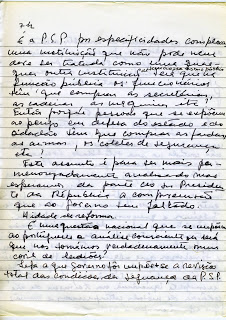 é a P.S.P. pos especificidades complexas
uma instituição que não pode nem
deve ser tratada como uma qual-
quer outra instituição. Será que na
função publica os funcionários
têm que comprar as secretárias,
as cadeiras as maquinas etc.
Então porquê pessoas que se expõem
ao perigo em defesa do estado e dos
cidadãos têm que comprar as fardas
as armas, os coletes de segurança
etc.
Este assunto é para ser mais por-
menorizadamente analisado mas
esperamos da parte do Sr. Presiden-
te da República a compreensão
que ao Governo tem faltado.
A idade de reforma
É uma questão nacional que se impõe
ao português a análise consciente ou será
que nos tornámos verdadeiramente numa
de ladrões!
Seja a que Governo fôr impõe-se a revisão
total das condições de segurança da P.S.P.